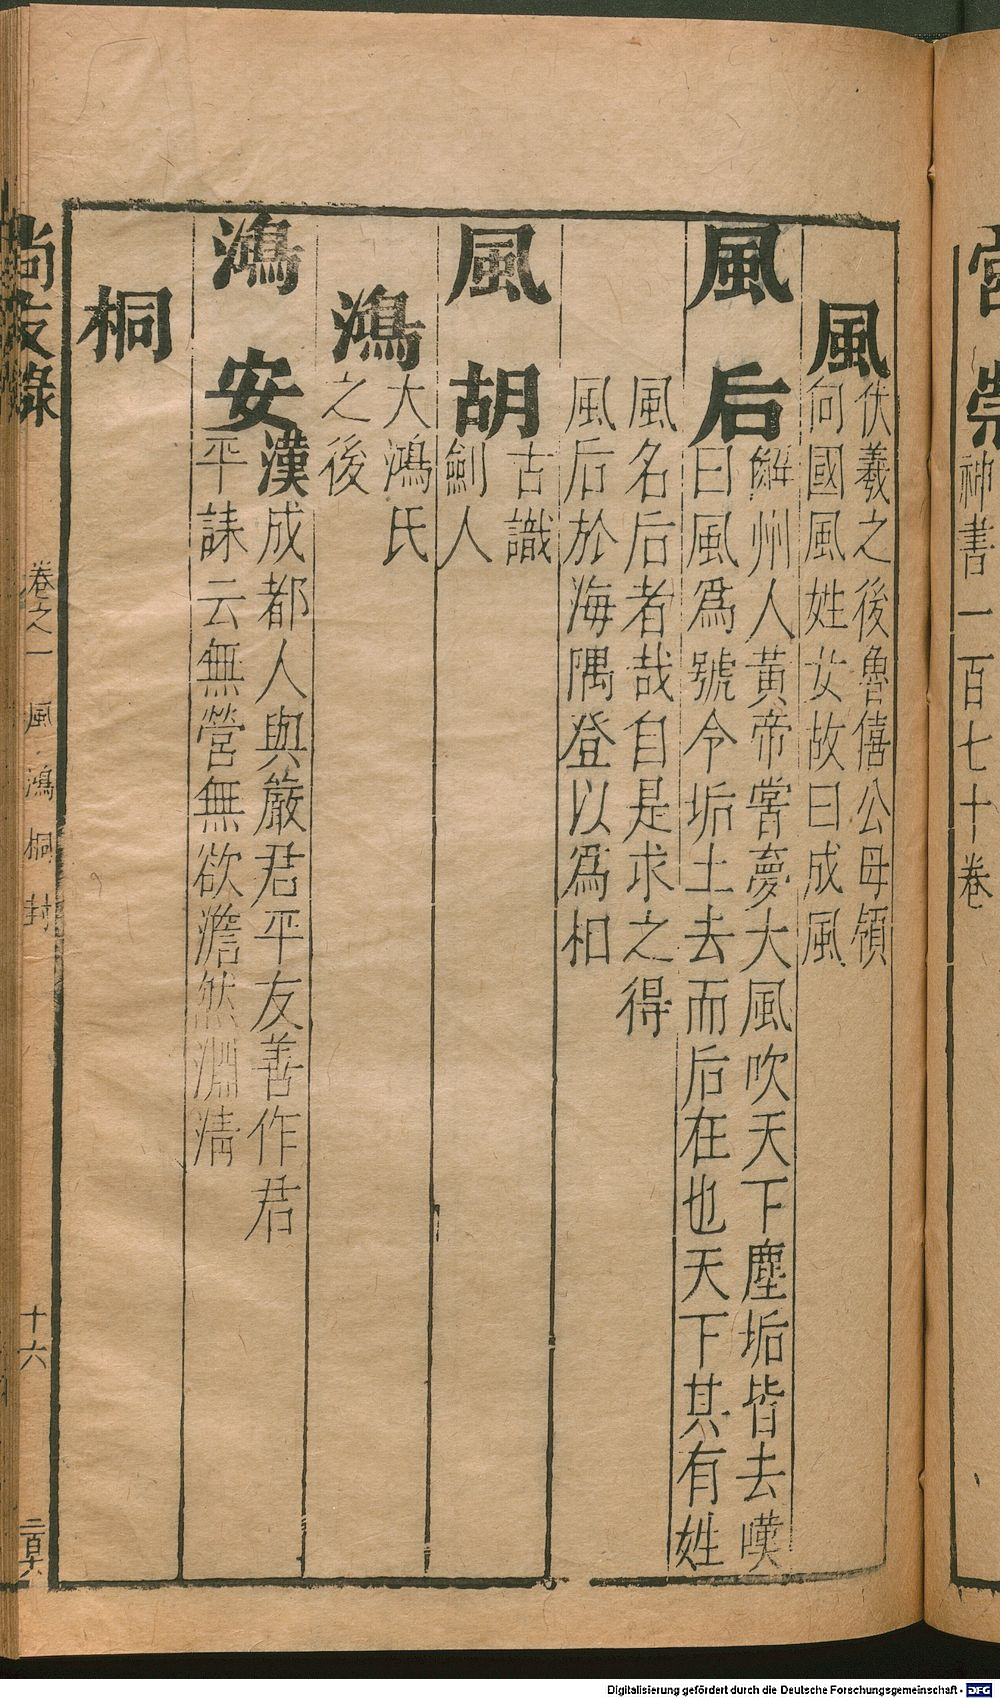 宮崇
神書一百七十卷
風
伏羲之後魯僖公母須
句國風姓女故曰成風
風后
解州人黃帝嘗夢大風吹天下塵垢皆去嘆
曰風爲號令垢土去而后在也天下其有姓
風名后者哉自是求之得
風后於海隅登以爲相
風胡
古識
劍人
鴻
大鴻氏
之後
鴻安
漢成都人與嚴君平友善作君
平誄云無營無欲澹然淵清
桐
尚友錄 卷之一 風鴻桐封 十六
Digitalisierung gefördert durch die Deutsche Forschungsgemeinschaft - DFG